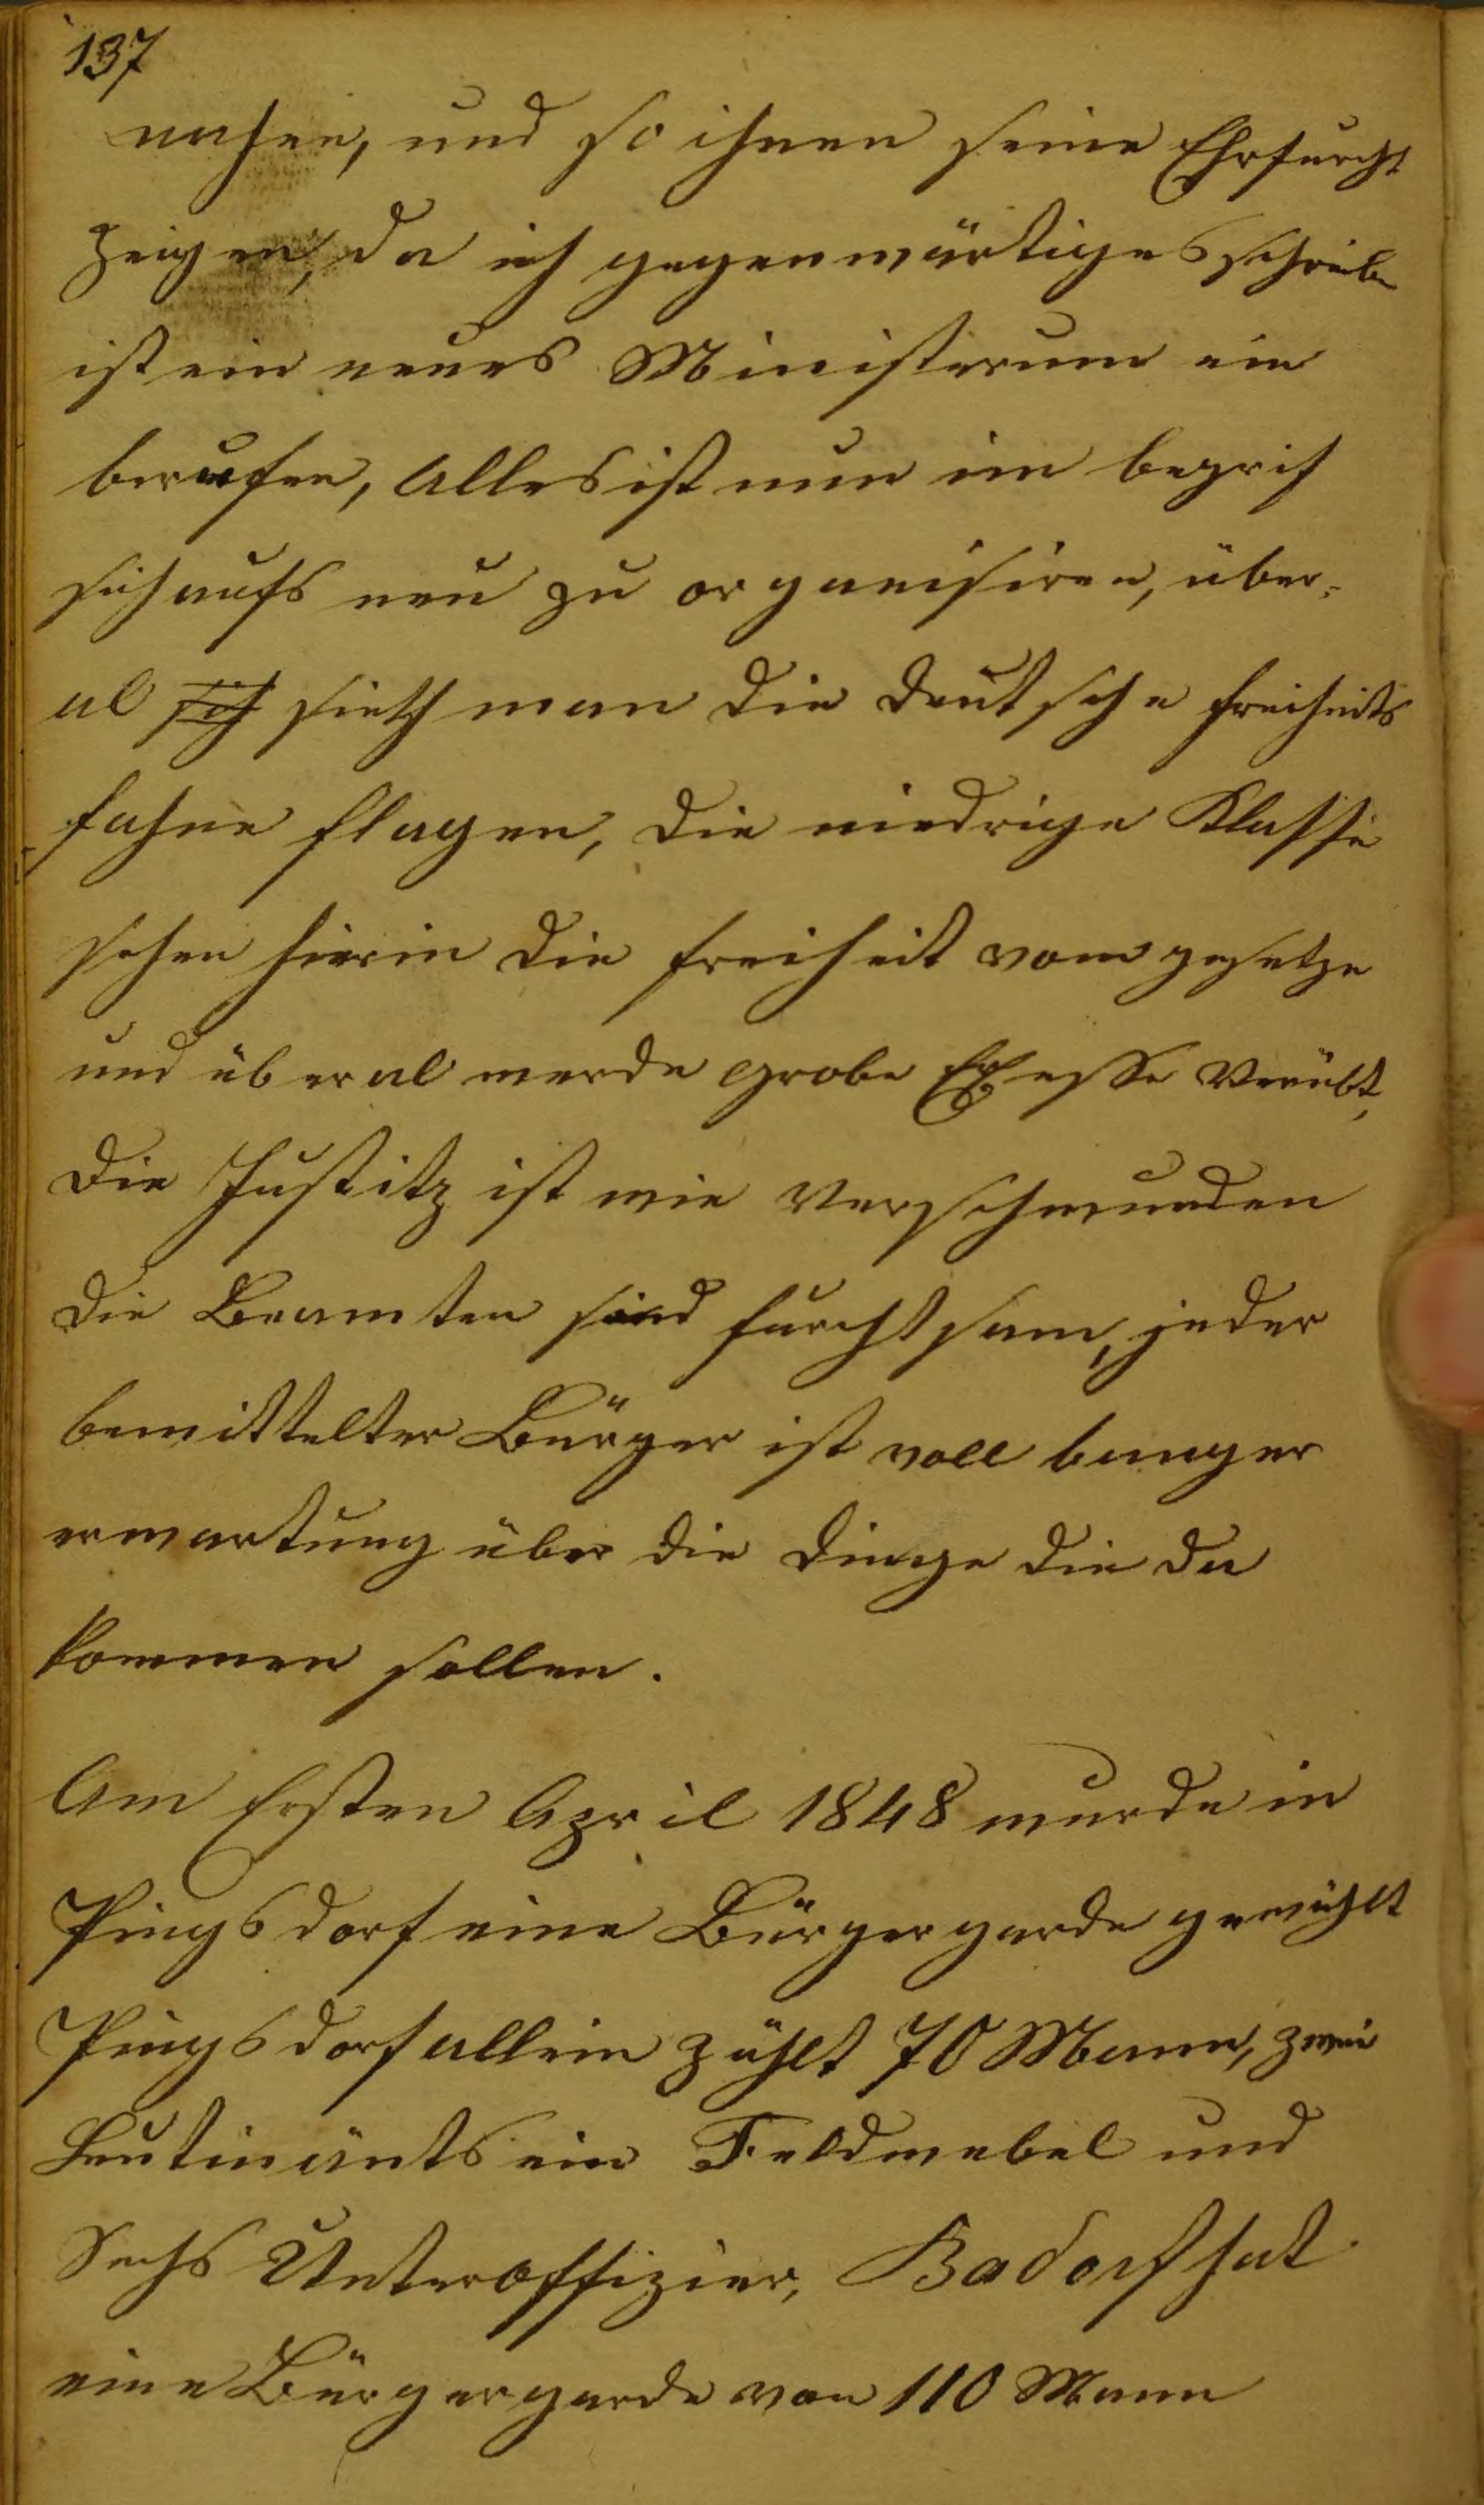 137
nahen, und so ihnen seine Ehrfurcht
zeigen, da ich gegenwärtiges schreibe
ist ein neues Ministerum ein
berufen, Alles ist nun im begrif
sich aufs neu zu organisiren, über-
al sich sieth man die deutsche freiheits
fahne flagen, die niedrige Klasse
sehen hierin die freiheit vom gesetze
und überal werde grobe Exesse Verübt,
die Justitz ist wie Verschwunden
die Beamten sind furchtsam, jeder
bemittelter Bürger ist voll banger
erwartung über die dinge die da
kommen sollen.
Am Ersten April 1848 wurde in
Pingsdorf eine Bürgergarde gewählt
Pingsdorf allein zählt 70 Mann, zwei
Leutinänts ein Feldwebel und
Sechs Unteroffizier, Badorf hat
eine Bürgergarde von 110 Mann